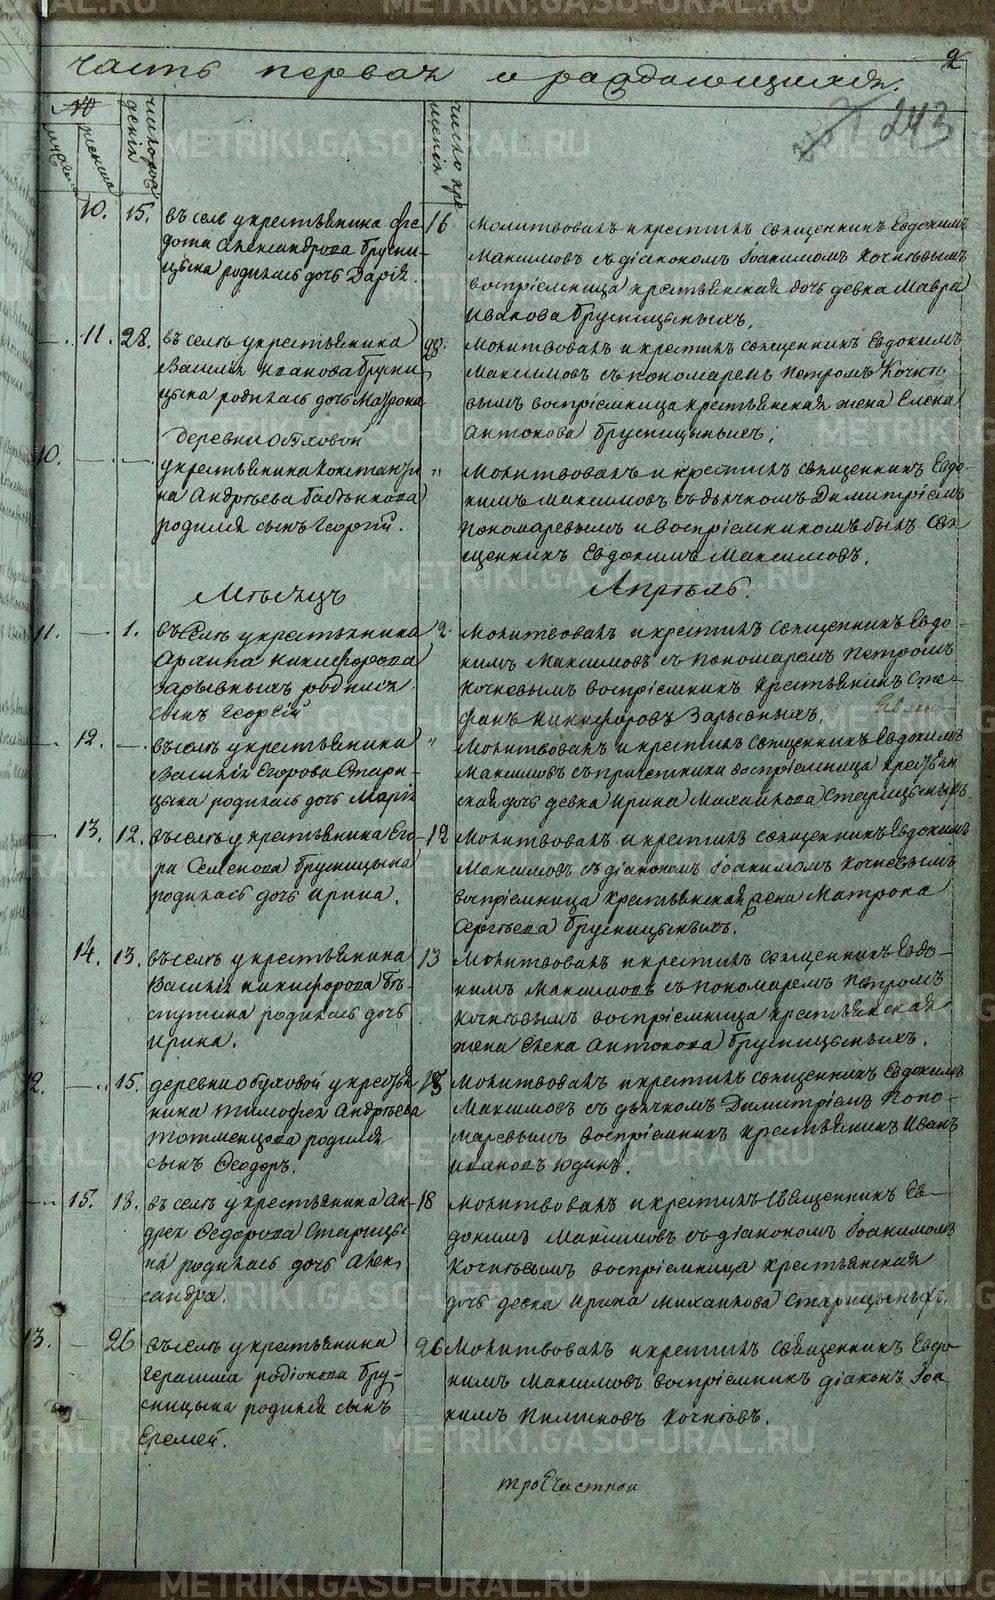 2
часть первая о раждающихся.
243
№
мужеска
женска
число рождения
число крещения
10. 15. въ селѣ у крестьянина Ѳе-
дота Александрова Брусни-
цына родилась дочь Дарія.
16 Молитвовалъ и крестилъ священникъ Евдокимъ
Максимовъ съ діакономъ Іоакимомъ Кочнѣвымъ
воспріемница крестьянская дочь девка Мавра
Иванова Брусницыныхъ.
11. 28. въ селѣ у крестьянина
Василія Иванова Брусни-
цына родилась дочь Матрона
28. Молитвовалъ и крестилъ священникъ Евдокимъ
Максимовъ съ пономаремъ Петромъ Кочнѣ-
вымъ воспріемница крестьянская жена Елена
Антонова Брусницыныхъ.
10. деревни Обуховой
у крестьянина Константи-
на Андрѣева
родился сынъ Георгій.
" Молитвовалъ и крестилъ священникъ Евдо-
кимъ Максимовъ съ дьячкомъ Димитріемъ
Пономаревымъ и воспріемникомъ былъ свя-
щенникъ Евдокимъ Максимовъ.
Мѣсяцъ Апрѣль.
11. 1. въ селѣ у крестьянина
Архипа Никифорова
Зарывныхъ родился
сынъ Георгій
2. Молитвовалъ и крестилъ священникъ Евдо-
кимъ Максимовъ съ пономаремъ Петромъ
Кочневымъ воспріемникъ крестьянинъ Сте-
фанъ Никифоровъ Зарывныхъ.
12. въ селѣ у крестьянина
Василія Егорова Стари-
цына родилась дочь Марія
" Молитвовалъ и крестилъ священникъ Евдокимъ
Максимовъ съ причетники воспріемница крестьян
ская дочь девка Ирина Михайлова Старицыныхъ.
13. 12. въ селѣ у крестьянина Его-
ра Семенова Брусницына
родилась дочь Ирина.
12 Молитвовалъ и крестилъ священникъ Евдокимъ
Максимовъ съ діакономъ Іоакимомъ Кочневымъ
воспріемница крестьянская жена Матрона
Сергѣева Брусницыныхъ.
14. 13. въ селѣ у крестьянина
Василія Никифорова
родилась дочь
Ирина.
13 Молитвовалъ и крестилъ священникъ Евдо-
кимъ Максимовъ съ пономаремъ Петромъ
Кочнѣвымъ воспріемница крестьянская
жена Елена Антонова Брусницыныхъ.
12. 15. деревни Обуховой у крестья
нина Тимофея Андрѣева
Тотменцова родился
сынъ Ѳеодоръ.
Молитвовалъ и крестилъ священникъ Евдокимъ
Максимовъ съ дьячкомъ Димитріемъ Поно-
маревымъ воспріемникъ крестьянинъ Иванъ
Ивановъ Юдинъ.
15. 18. въ селѣ у крестьянина Ан-
дрея Ѳедорова Старицы
на родилась дочь Алек
сандра.
18 Молитвовалъ и крестилъ священникъ Ев-
докимъ Максимовъ съ діакономъ Іоакимомъ
Кочнѣвымъ воспріемница крестьянская
дочь девка Ирина Михайлова Старицыныхъ.
13. 26 въ селѣ у крестьянина
Герасима Родіонова Бру-
сницына родился сынъ
Еремей.
26 Молитвовалъ и крестилъ священникъ Евдо-
кимъ Максимовъ воспріемникъ діаконъ Іоа
кимъ Кочнѣвъ.
METRIKI.GASO-URAL.RU